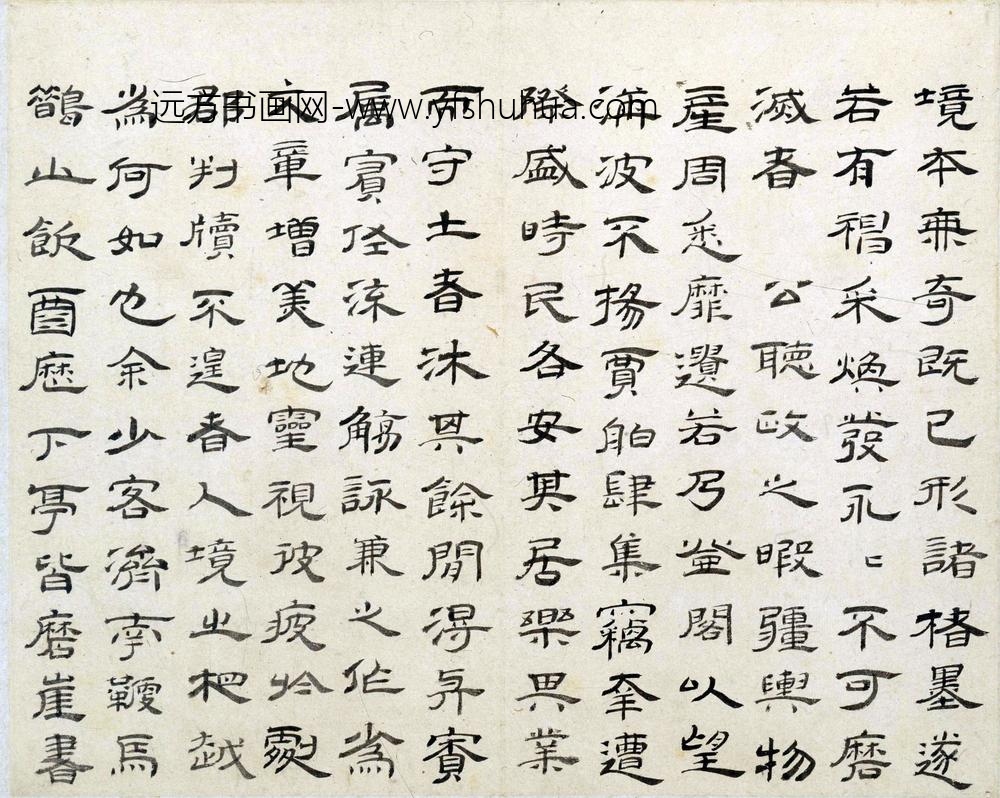 远方书画网-www.yfshuhua.com
境本兼奇既已形諸楮墨遂
若有采煥發永〻不可磨
滅者公聽政之暇疆輿物
產周悉靡遺若乃登閣以望
海波不揚賈舶肆集竊幸遭
際盛時民各安其居樂其業
而守土者沐其餘閒得與賓
屬寅流連觴詠兼之作為
文章增美地靈視彼疲於劇
郡判牘不遑者人境之相越
為何如也余少客濟南鞭馬
鵲山飲酒歷下亭皆磨崖書